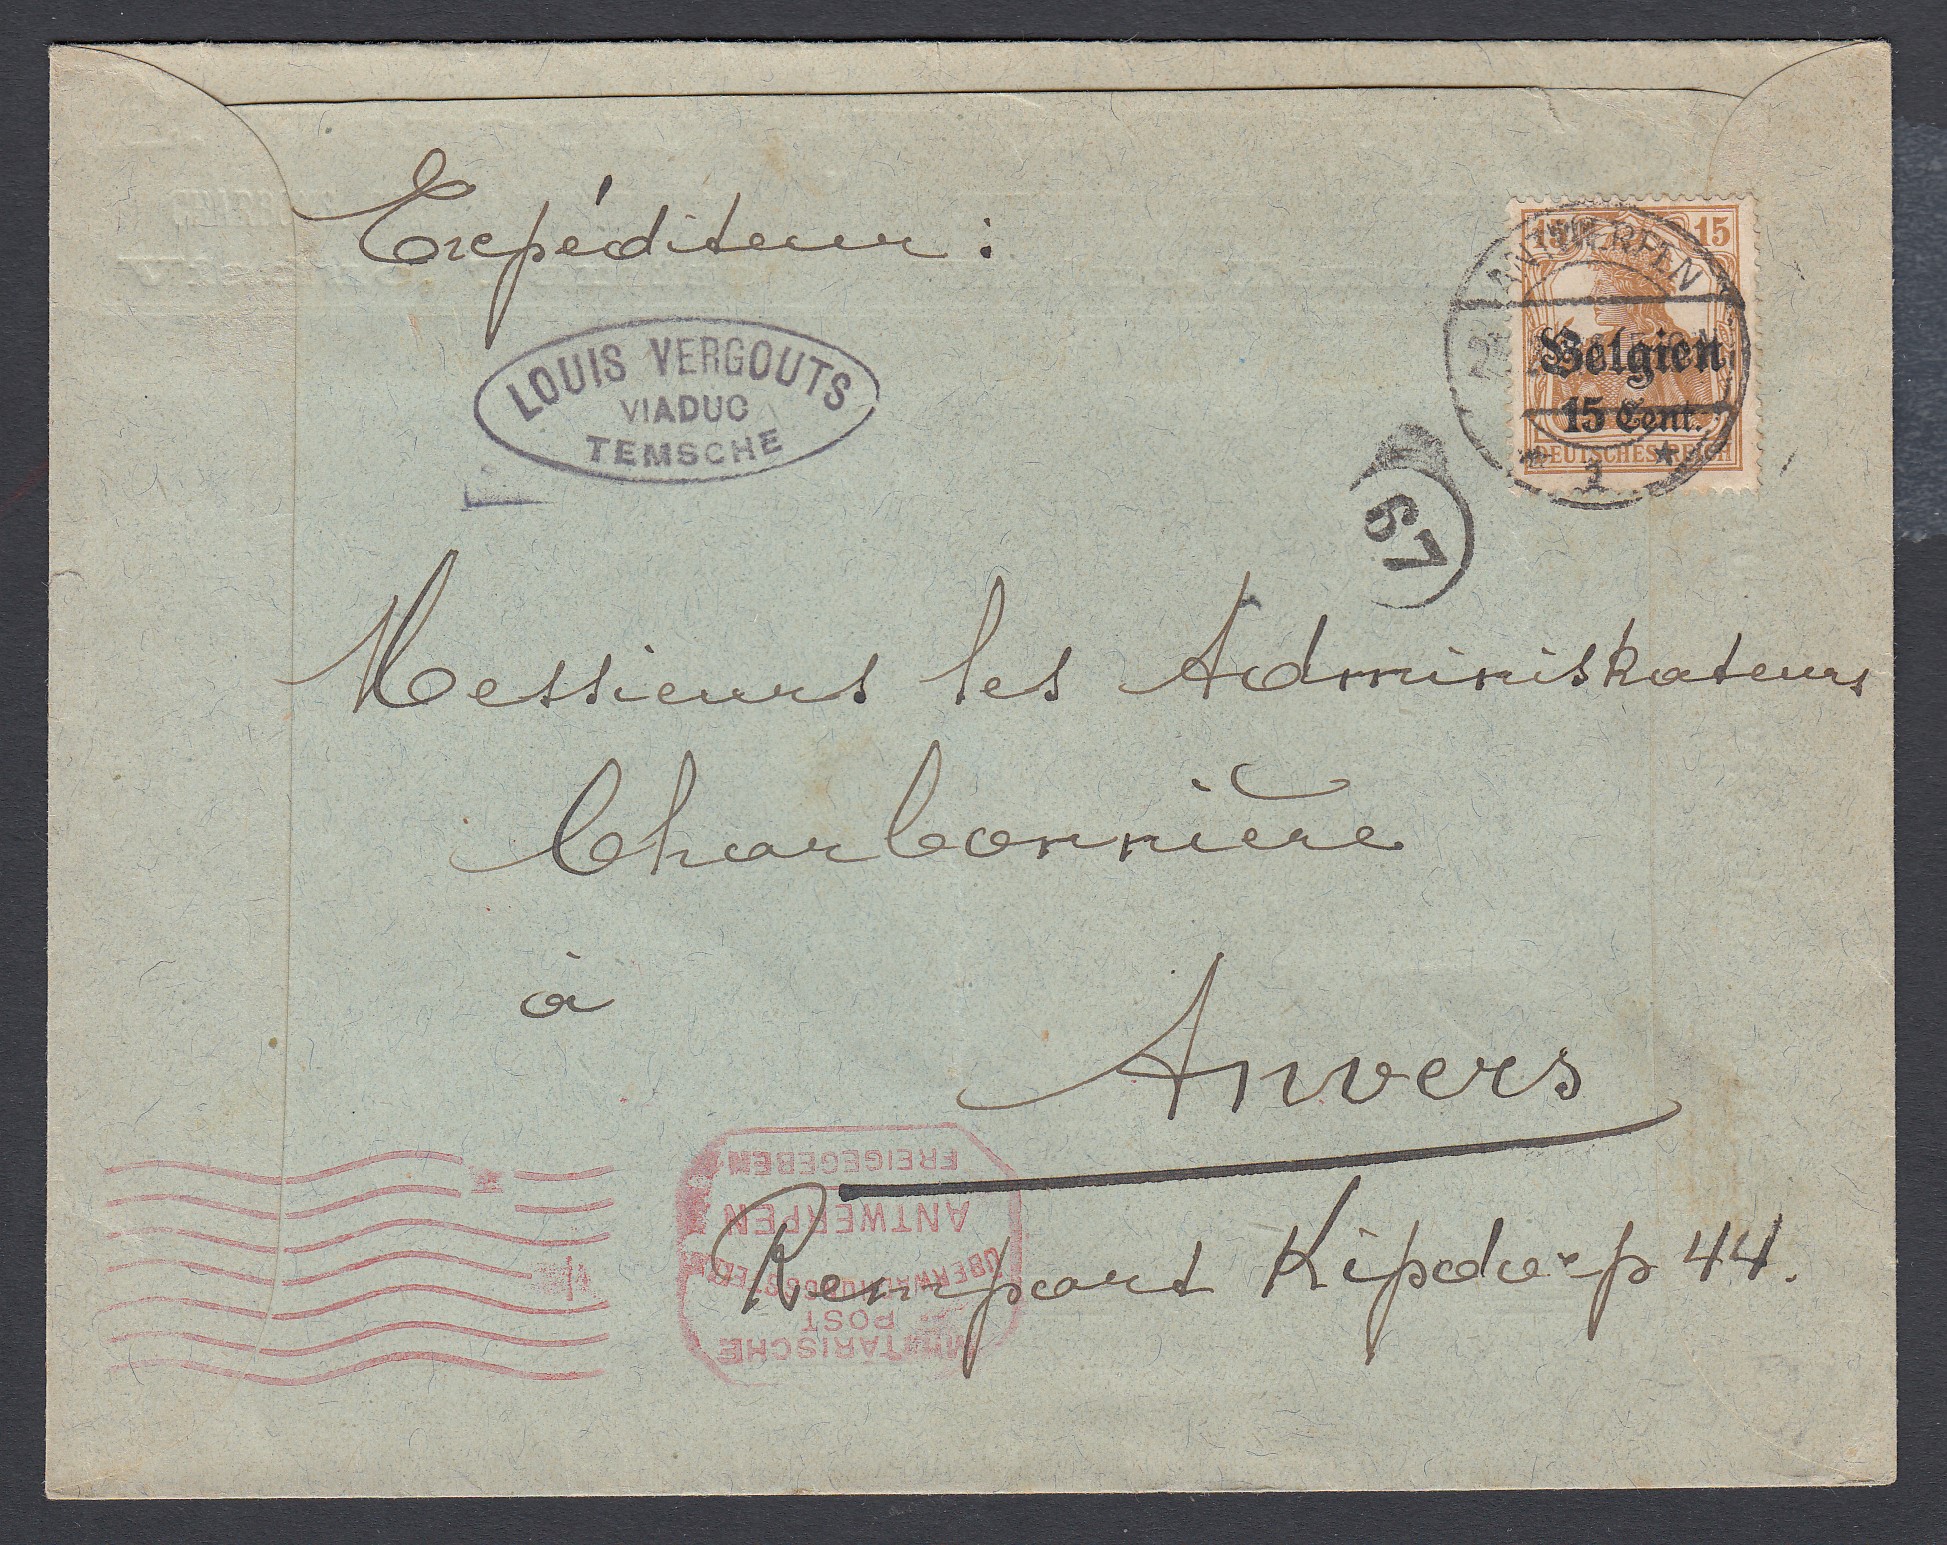 Expéditeur :
LOUIS VERGOUTS
VIADUC
TEMSCHE
15 15
ANTWERPEN
Belgien
15 Cent.
DEUTSCHES REICH
* 1 *
67
Messieurs les Administrateurs
Charbonnière
à
Anvers
Rempart Kipdorp 44.
MILITÄRISCHE
POST
ÜBERWACHUNGSSTELLE
ANTWERPEN
FREIGEGEBEN